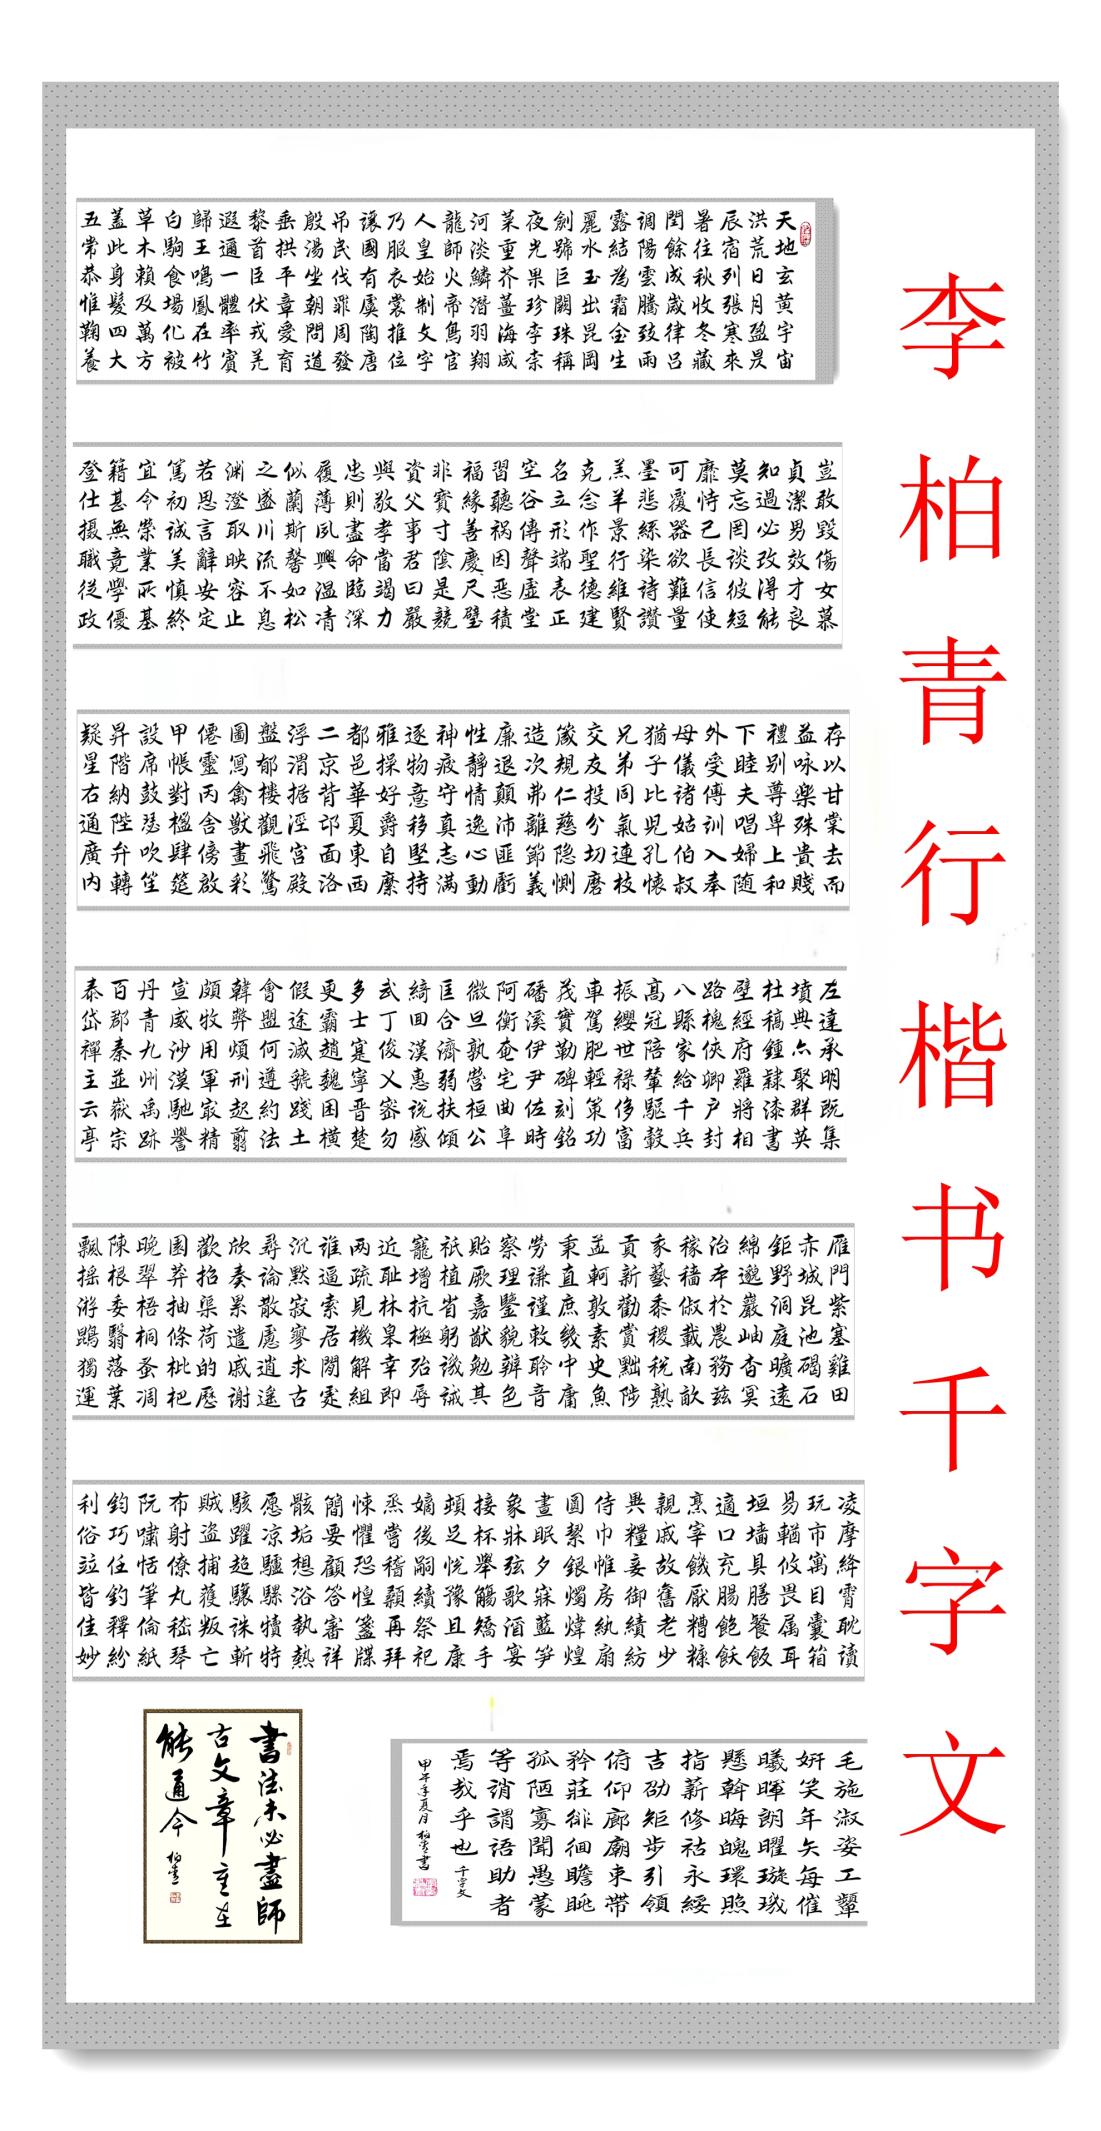 李柏青行楷书千字文
天地玄黄宇宙
洪荒日月盈昃
辰宿列張寒來
暑往秋收冬藏
閏餘成歲律呂
調陽雲騰致雨
露結為霜金生
麗水玉出昆岡
劍號巨闕珠稱
夜光果珍李柰
菜重芥薑海咸
河淡鱗潛羽翔
龍師火帝鳥官
人皇始制文字
乃服衣裳推位
讓國有虞陶唐
吊民伐罪周發
殷湯坐朝問道
垂拱平章愛育
黎首臣伏戎羌
遐邇一體率賓
歸王鳴鳳在竹
白駒食場化被
草木賴及萬方
蓋此身髮四大
五常恭惟鞠養
豈敢毀傷女慕
貞潔男效才良
知過必改得能
莫忘罔談彼短
靡恃己長信使
可覆器欲難量
墨悲絲染詩讚
羔羊景行維賢
克念作聖德建
名立形端表正
空谷傳聲虛堂
習聽禍因惡積
福緣善慶尺璧
非寶寸陰是競
資父事君曰嚴
與敬孝當竭力
忠則盡命臨深
履薄夙興溫凊
似蘭斯馨如松
之盛川流不息
淵澄取映容止
若思言辭安定
篤初誠美慎終
宜令榮業所基
籍甚無竟學優
登仕攝職從政
存以甘棠去而
益咏樂殊貴賤
禮别尊卑上和
下睦夫唱婦随
外受傅訓入奉
母儀诸姑伯叔
猶子比兒孔懷
兄弟同氣連枝
交友投分切磨
箴規仁慈隐惻
造次弗離節義
廉退顛沛匪虧
性靜情逸心動
神疲守真志滿
逐物意移堅持
雅操好爵自縻
都邑華夏東西
二京背邙面洛
浮渭据涇宮殿
盤郁楼觀飛驚
圖寫禽獸畫彩
僊靈丙舍傍啟
甲帳對楹肆筵
設席鼓瑟吹笙
昇階納陛弁轉
疑星右通廣内
左達承明既集
墳典亦聚群英
杜稿鍾隸漆書
壁經府羅將相
路槐俠卿户封
八縣家給千兵
高冠陪輦驅轂
振纓世禄侈富
車駕肥輕策功
茂實勤碑刻銘
磻溪伊尹佐時
阿衡奄宅曲阜
微旦孰營桓公
匡合濟弱扶傾
綺回漢惠说感
武丁俊乂密勿
多士寔寧晋楚
更霸趙魏困橫
假途滅虢踐土
會盟何遵約法
韓弊煩刑起翦
頗牧用軍最精
宣威沙漠馳譽
丹青九州禹跡
百郡秦並嶽宗
泰岱禪主云亭
雁門紫塞雞田
赤城昆池碣石
鉅野洞庭曠遠
綿邈巖岫杳冥
治本於農務兹
稼穡俶載南畝
我藝黍稷税熟
貢新勸賞黜陟
孟軻敦素史魚
秉直庶幾中庸
劳谦谨敕聆音
察理鑒貌辨色
貽厥嘉猷勉其
祇植省躬譏誡
寵增抗極殆辱
近耻林皋幸即
两疏見機解組
谁逼索居閒處
沉默寂寥求古
尋論散慮逍遥
欣奏累遣慼謝
歡招渠荷的歷
園莽抽條枇杷
晚翠梧桐蚤凋
陳根委翳落葉
飄摇游鵾獨運
凌摩絳霄耽读
玩市寓目囊箱
易輶攸畏属耳
垣墙具膳餐飯
適口充腸飽飫
烹宰饑厭糟糠
親戚故舊老少
異糧妾御績紡
侍巾帷房紈扇
圓絜銀燭煒煌
晝眠夕寐藍笋
象牀弦歌酒宴
接杯舉觴矯手
頓足悦豫且康
嫡後嗣續祭祀
烝嘗稽顙再拜
悚懼恐惶箋牒
簡要顧答審詳
骸垢想浴執熱
愿凉驢騾犢特
駭躍超驤誅斬
賊盗捕獲叛亡
布射僚丸嵇琴
阮嘯恬筆倫紙
鈞巧任釣釋紛
利俗竝皆佳妙
毛施淑姿工顰
妍笑年矢每催
曦暉朗曜璇璣
懸斡晦魄環照
指薪修祜永綏
吉劭矩步引領
俯仰廊廟束带
矜莊徘徊瞻眺
孤陋寡聞愚蒙
等誚謂语助者
焉哉乎也 千字文
甲午年夏月柏青書
書法未必盡師
古文章重在
能通今 柏青